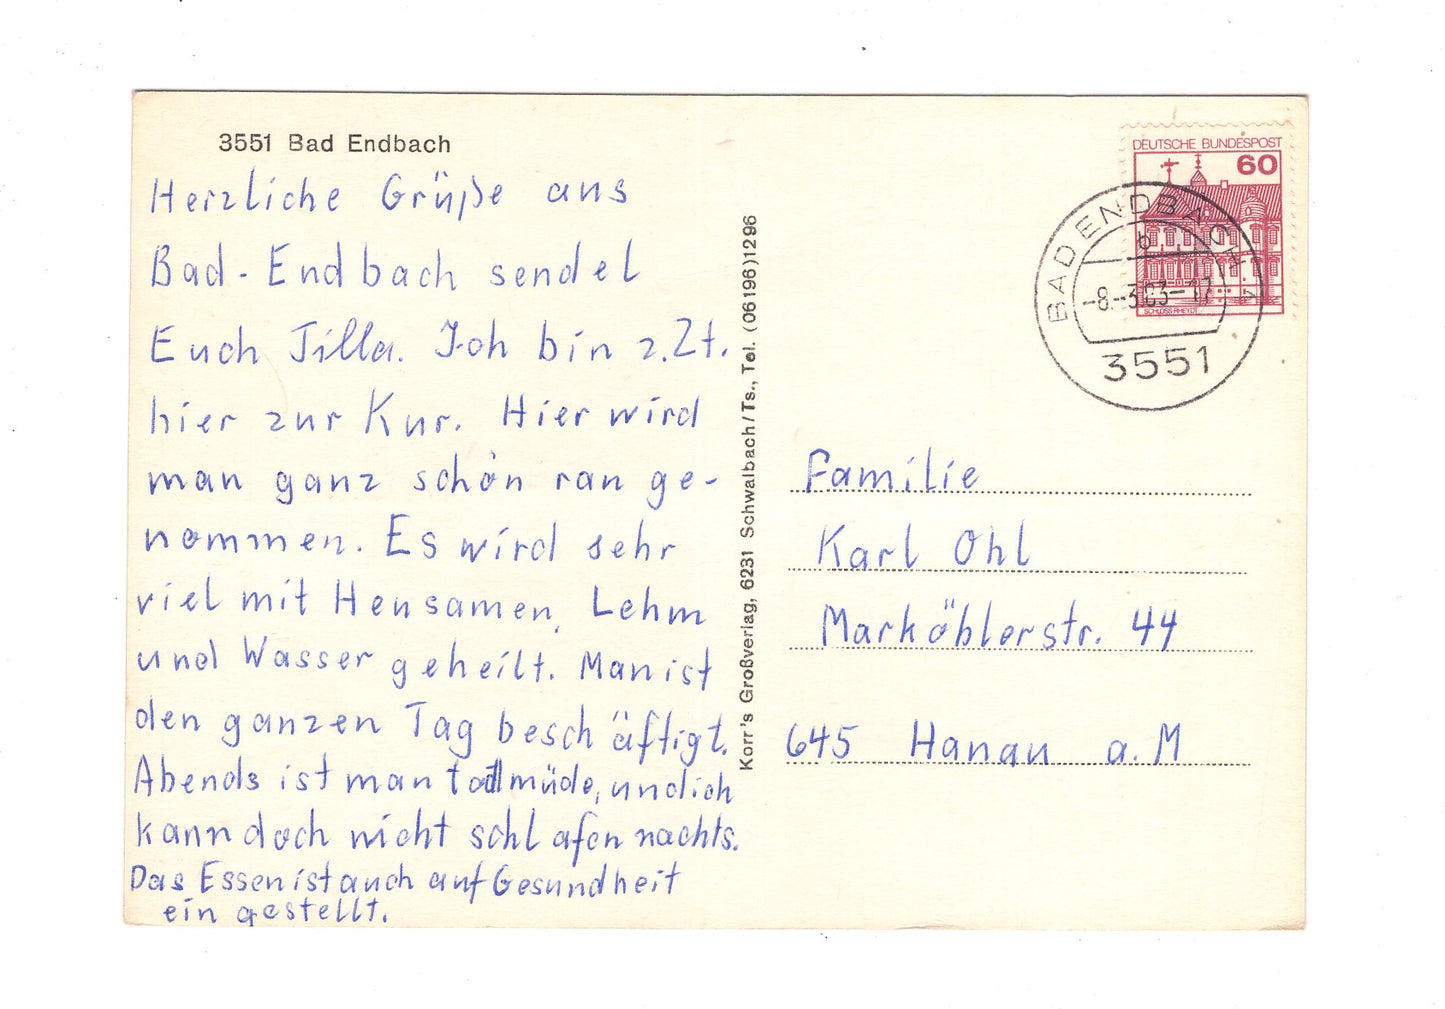 3551 Bad Endbach
Herzliche Grüße aus
Bad-Endbach sendet
Euch Tilla. Ich bin z.Zt.
hier zur Kur. Hier wird
man ganz schön ran ge-
nommen. Es wird sehr
viel mit Heusamen, Lehm
und Wasser geheilt. Man ist
den ganzen Tag beschäftigt.
Abends ist man todmüde, und ich
kann doch nicht schlafen nachts.
Das Essen ist auch auf Gesundheit
eingestellt.
Korr's Großverlag, 6231 Schwalbach/Ts., Tel. (06196) 1296
DEUTSCHE BUNDESPOST
60
SCHLOSS RHEYDT
BAD ENDBACH 1
b
-8.-3.83-17
3551
Familie
Karl Ohl
Marköblerstr. 44
645 Hanau a.M